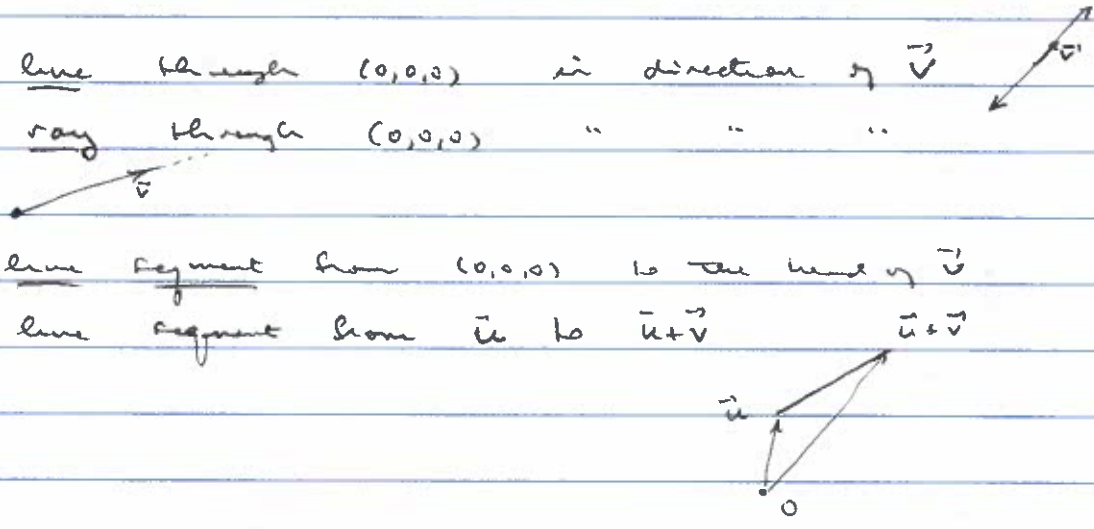 line through (0,0,0) in direction of v⃗
v⃗
ray through (0,0,0) " " "
v⃗
line segment from (0,0,0) to the head of v⃗
line segment from u⃗ to u⃗+v⃗
u⃗+v⃗
u⃗
O